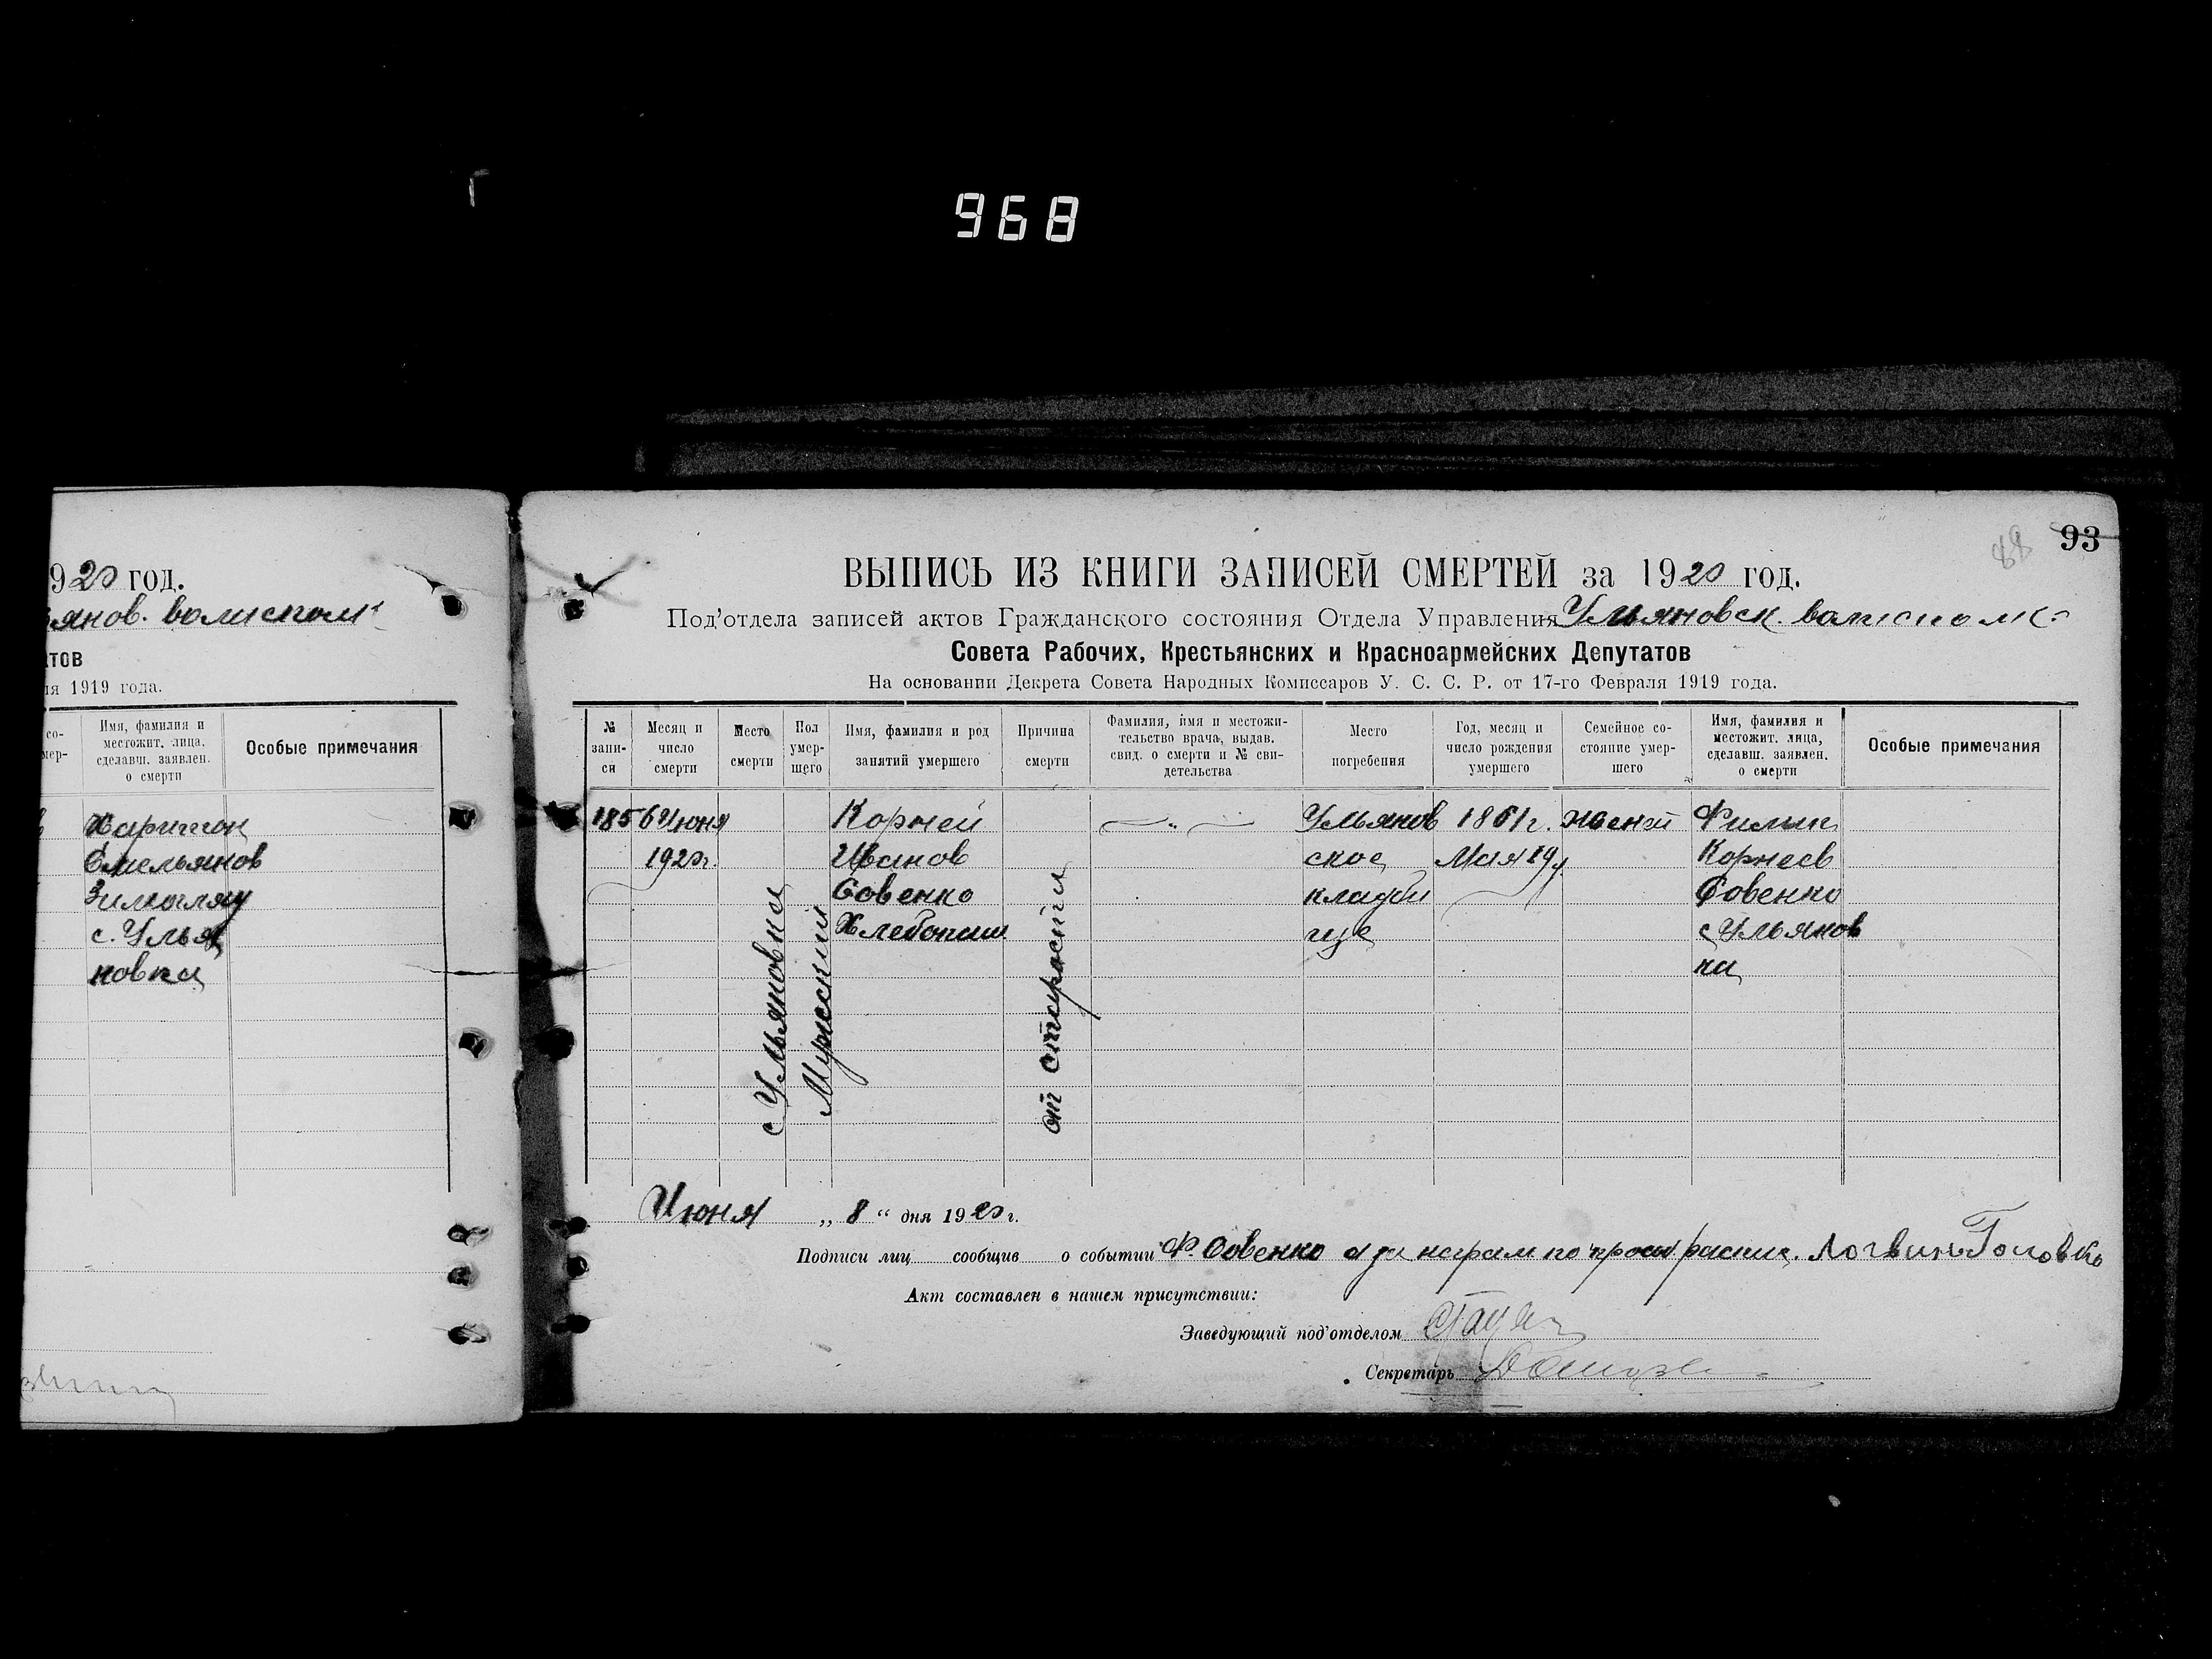 968
920 год.
янов. волисполк
тов
я 1919 года.
со-
мер-
Имя, фамилия и
местожит. лица,
сделавш. заявлен.
о смерти
Особые примечания
Харитон
Емельянов
с. Улья
новка
93
88
ВЫПИСЬ ИЗ КНИГИ ЗАПИСЕЙ СМЕРТЕЙ за 1920 год.
Под'отдела записей актов Гражданского состояния Отдела Управления Ульяновск. волисполк
Совета Рабочих, Крестьянских и Красноармейских Депутатов
На основании Декрета Совета Народных Комиссаров У. С. С. Р. от 17-го Февраля 1919 года.
№
запи-
си
Месяц и
число
смерти
Место
смерти
Пол
умер-
щего
Имя, фамилия и род
занятий умершего
Причина
смерти
Фамилия, имя и местожи-
тельство врача, выдав.
свид. о смерти и № сви-
детельства
Место
погребения
Год, месяц и
число рождения
умершего
Семейное со-
стояние умер-
шего
Имя, фамилия и
местожит. лица,
сделавш. заявлен.
о смерти
Особые примечания
185
6 Июня
1920г.
с Ульяновка
Мужский
Корней
Иванов
Совенко
Хлебопаш
от старости
Ульянов
ское
кладби
ще
1861г.
Мая 19
женат
Филип
Корнеев
Совенко
с Ульянов
ка
Июня „ 8 “ дня 1920 г.
Подписи лиц сообщив о событии Ф. Совенко а за неграм по просьб распис. Логвин Головко
Акт составлен в нашем присутствии:
Заведующий под'отделом
Секретарь